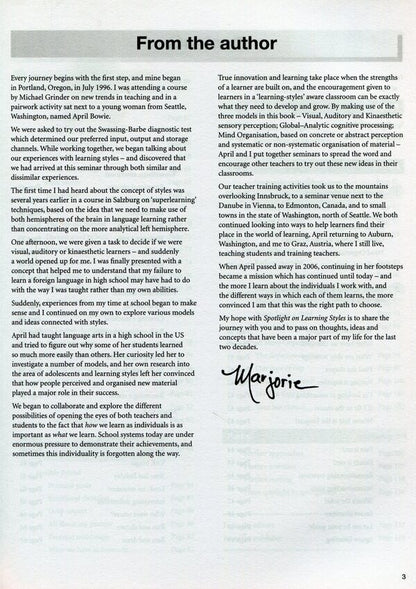 From the author
Every journey begins with the first step, and mine began
in Portland, Oregon, in July 1996. I was attending a course
by Michael Grinder on new trends in teaching and in a
pairwork activity sat next to a young woman from Seattle,
Washington, named April Bowie.
We were asked to try out the Swassing-Barbe diagnostic test
which determined our preferred input, output and storage
channels. While working together, we began talking about
our experiences with learning styles – and discovered that
we had arrived at this seminar through both similar and
dissimilar experiences.
The first time I had heard about the concept of styles was
several years earlier in a course in Salzburg on 'superlearning'
techniques, based on the idea that we need to make use of
both hemispheres of the brain in language learning rather
than concentrating on the more analytical left hemisphere.
One afternoon, we were given a task to decide if we were
visual, auditory or kinaesthetic learners – and suddenly
a world opened up for me. I was finally presented with a
concept that helped me to understand that my failure to
learn a foreign language in high school may have had to do
with the way I was taught rather than my own abilities.
Suddenly, experiences from my time at school began to make
sense and I continued on my own to explore various models
and ideas connected with styles.
April had taught language arts in a high school in the US
and tried to figure out why some of her students learned
so much more easily than others. Her curiosity led her to
investigate a number of models, and her own research into
the area of adolescents and learning styles left her convinced
that how people perceived and organised new material
played a major role in their success.
We began to collaborate and explore the different
possibilities of opening the eyes of both teachers and
students to the fact that how we learn as individuals is as
important as what we learn. School systems today are under
enormous pressure to demonstrate their achievements, and
sometimes this individuality is forgotten along the way.
True innovation and learning take place when the strengths
of a learner are built on, and the encouragement given to
learners in a 'learning-styles' aware classroom can be exactly
what they need to develop and grow. By making use of the
three models in this book – Visual, Auditory and Kinaesthetic
sensory perception; Global–Analytic cognitive processing;
Mind Organisation, based on concrete or abstract perception
and systematic or non-systematic organisation of material –
April and I put together seminars to spread the word and
encourage other teachers to try out these new ideas in their
classrooms.
Our teacher training activities took us to the mountains
overlooking Innsbruck, to a seminar venue next to the
Danube in Vienna, to Edmonton, Canada, and to small
towns in the state of Washington, north of Seattle. We both
continued looking into ways to help learners find their
place in the world of learning, April returning to Auburn,
Washington, and me to Graz, Austria, where I still live,
teaching students and training teachers.
When April passed away in 2006, continuing in her footsteps
became a mission which has continued until today – and
the more I learn about the individuals I work with, and
the different ways in which each of them learns, the more
convinced I am that this was the right path to choose.
My hope with Spotlight on Learning Styles is to share the
journey with you and to pass on thoughts, ideas and
concepts that have been a major part of my life for the last
two decades.
Marjorie
3